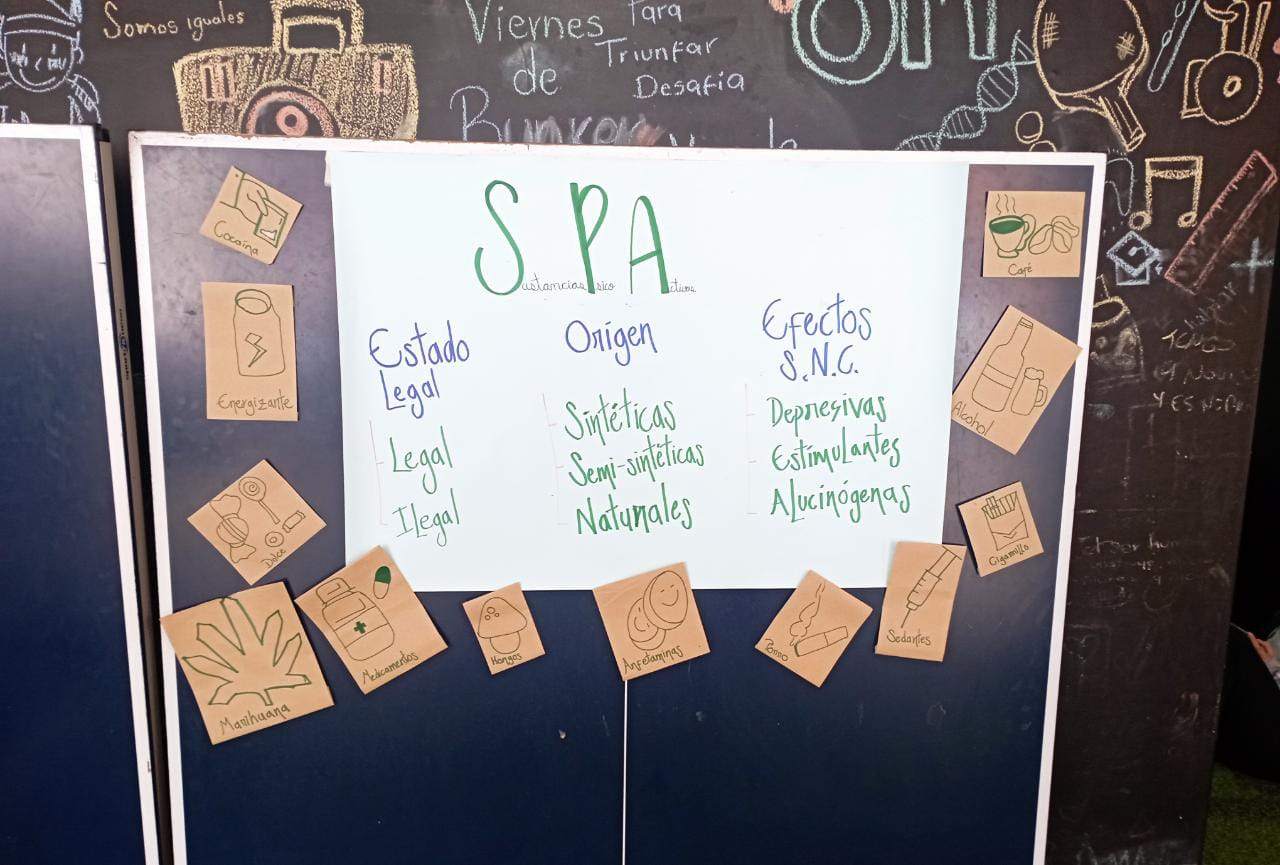 Somos iguales
Viernes
de
Para
Triunfar
Desafía
SPA
Sustancias Psico Activas
Estado
Legal
Legal
Ilegal
Origen
Sintéticas
Semi-sintéticas
Naturales
Efectos
S.N.C.
Depresivas
Estimulantes
Alucinógenas
Cocaína
Energizante
Dulce
Marihuana
Medicamentos
Hongos
Anfetaminas
Porro
Sedantes
Cigarrillo
Alcohol
Café